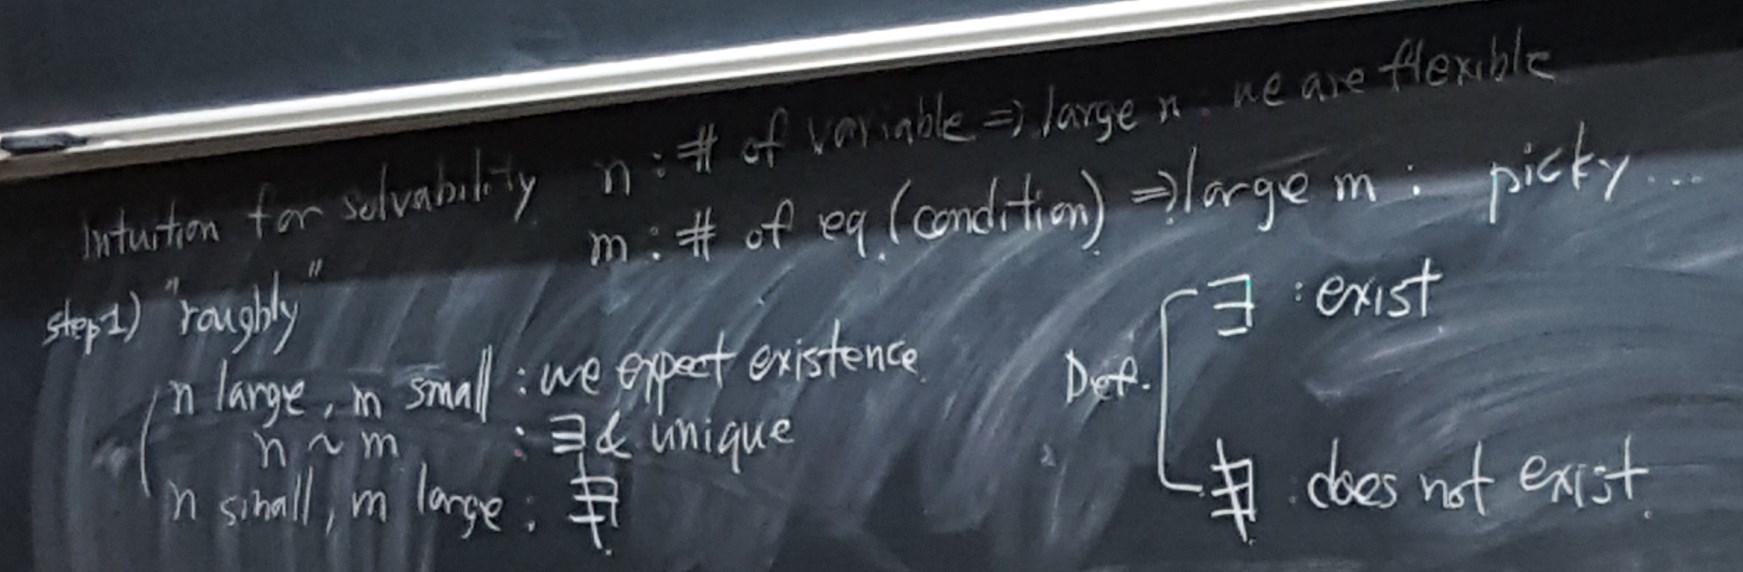 Intuition for solvability n : # of variable ⇒ large n : we are flexible
m : # of eq. (condition) ⇒ large m : picky...
step1) "roughly"
n large, m small : we expect existence.
n ~ m : ∃ & unique
n small, m large : ∄.
Def. ∃ : exist
∄ : does not exist.